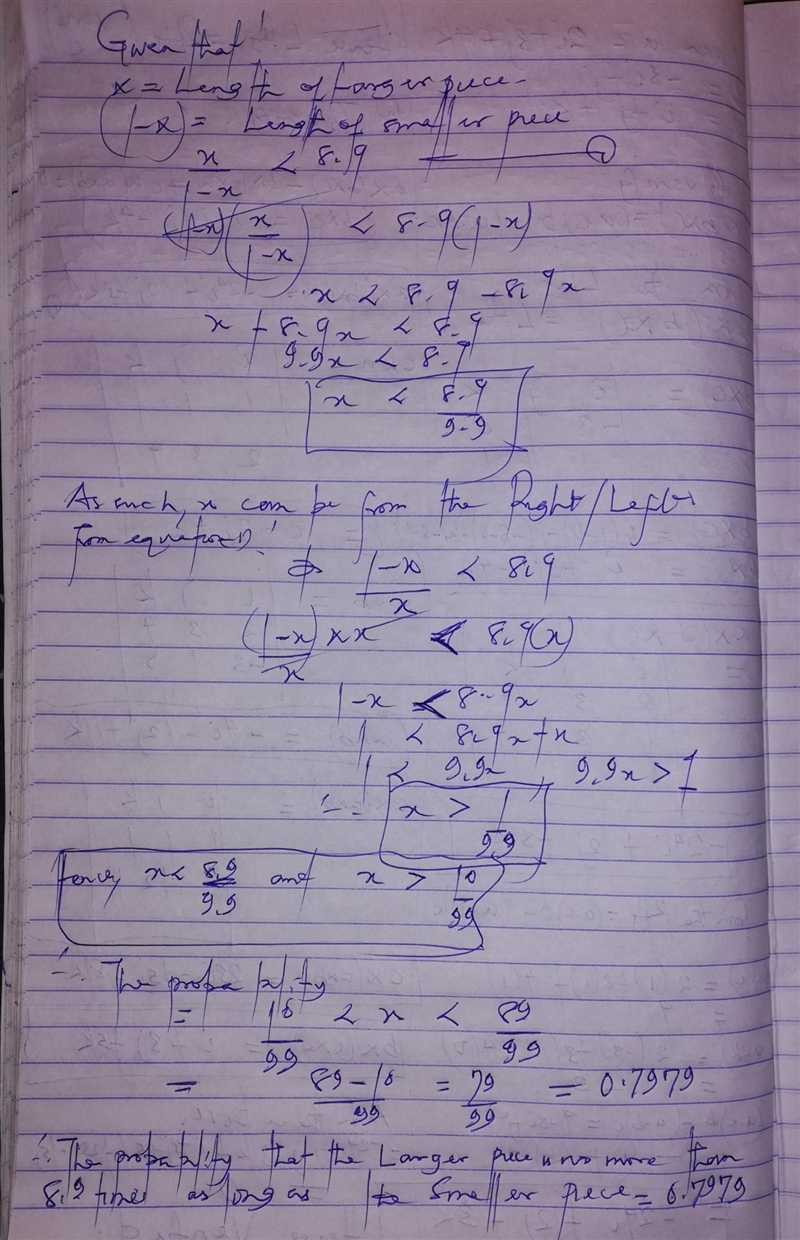 Given that
x = Length of Larger piece
(1-x) = Length of smaller piece
x/1-x < 8.9 ①
(1-x)(x/1-x) < 8.9(1-x)
x < 8.9 - 8.9x
x + 8.9x < 8.9
9.9x < 8.9
x < 8.9/9.9
As such, x can be from the Right/Left
from equation ①
⇒ 1-x/x < 8.9
(1-x)/x × x < 8.9(x)
1-x < 8.9x
1 < 8.9x+x
1 < 9.9x, 9.9x > 1
∴ x > 1/9.9
Hence, x < 8.9/9.9 and x > 10/99
∴ The propability
= 10/99 < x < 89/99
= 89-10/99 = 79/99 = 0.7979
∴ The propability that the Larger piece is no more than
8.9 times as long as the Smaller piece = 0.7979